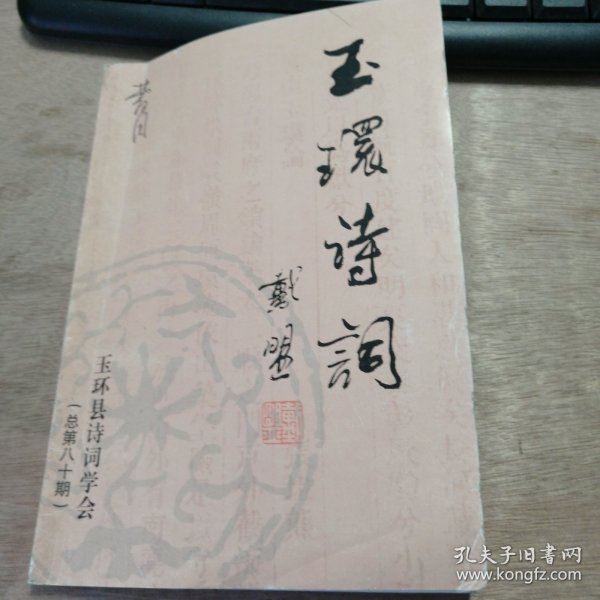 玉環诗詞
戴盟
玉环县诗词学会
(总第八十期)
孔夫子旧书网
www.kongfz.com